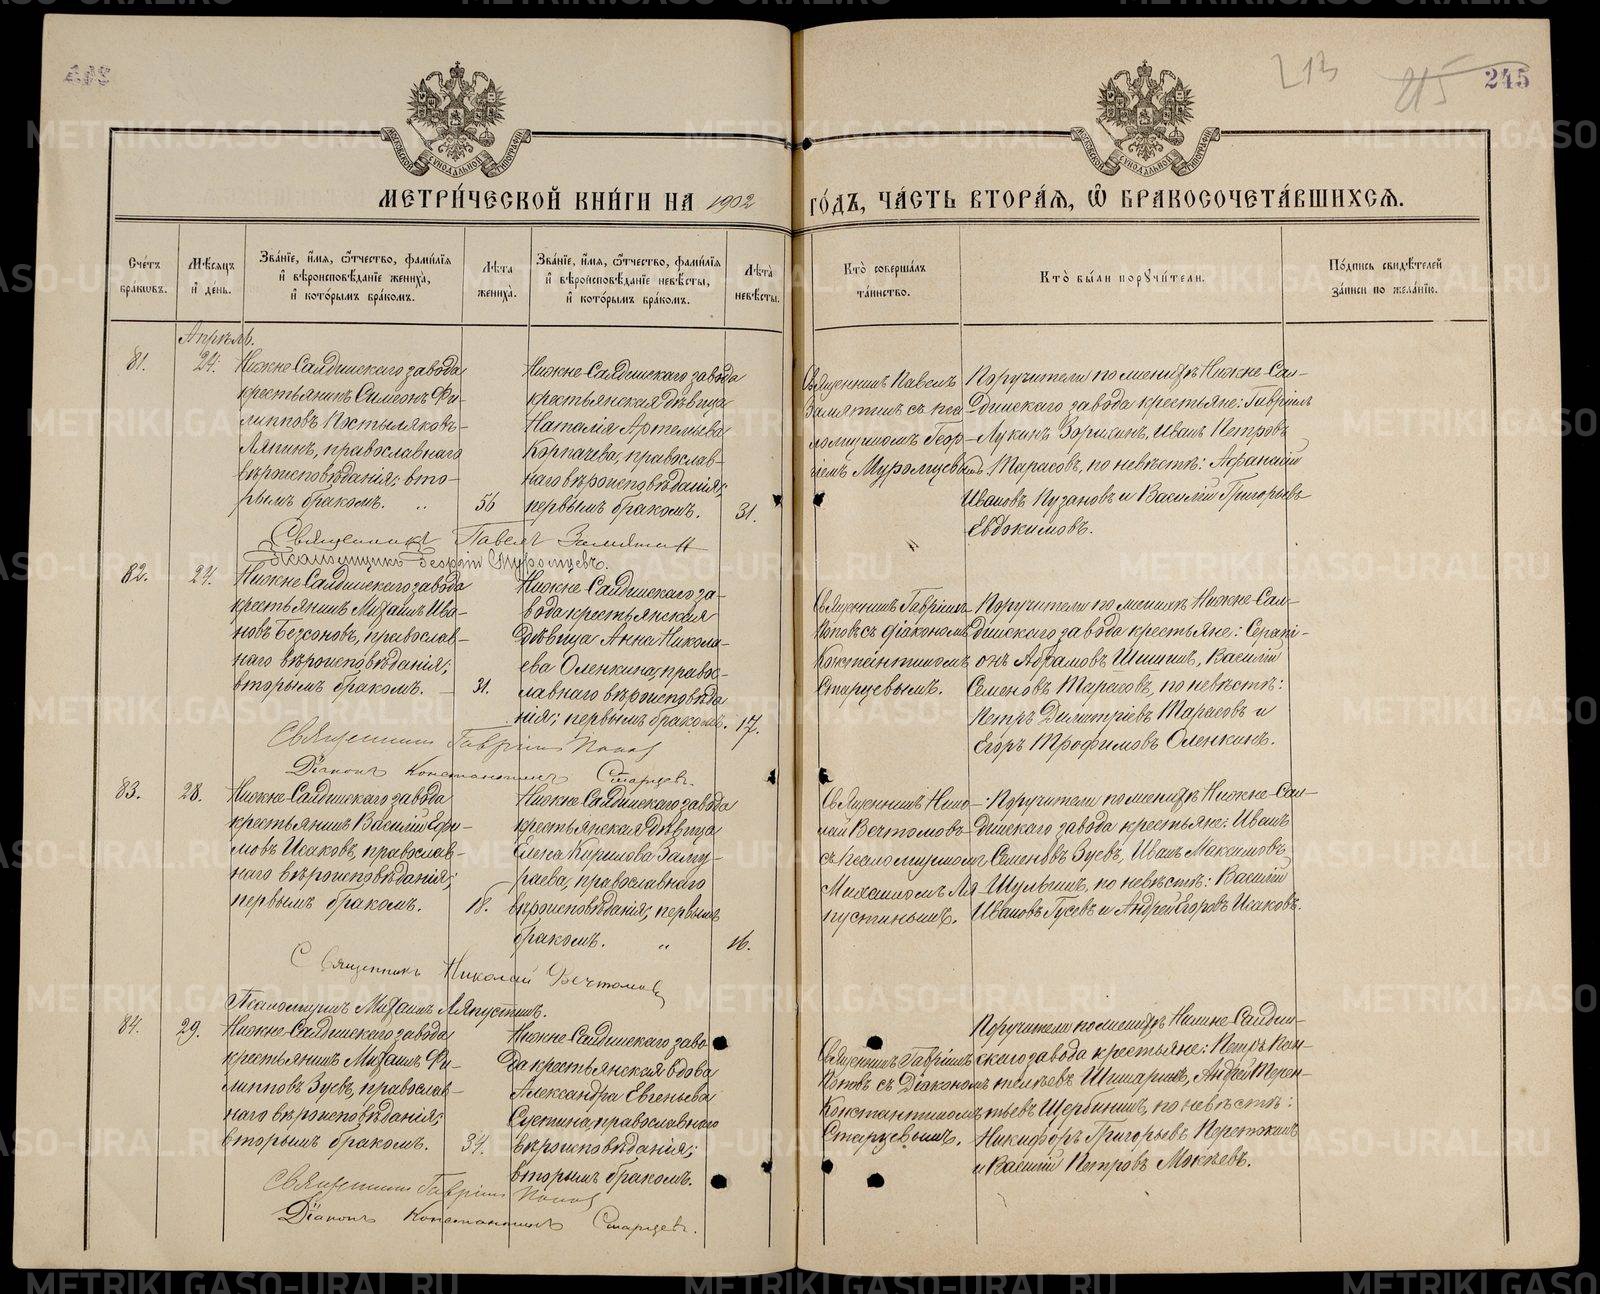 213
215
245
МОСКОВСКОЙ СѴНОДАЛЬНОЙ ТИПОГРАФІИ
МОСКОВСКОЙ СѴНОДАЛЬНОЙ ТИПОГРАФІИ
МЕТРИ́ЧЕСКОЙ КНИ́ГИ НА 1902 ГО́ДЪ, ЧА́СТЬ ВТОРА́Я, Ѽ БРАКОСОЧЕТА́ВШИХСѦ.
Сче́тъ бра́ковъ.
Мѣ́сяцъ и҆ де́нь.
Зва́нїе, и҆́мя, ѻ҆́тчество, фами́лїя и҆ вѣроисповѣ́данїе жениха̀, и҆ кото́рымъ бра́комъ.
Лѣ́та жениха̀.
Зва́нїе, и҆́мя, ѻ҆́тчество, фами́лїя и҆ вѣроисповѣ́данїе невѣ́сты, и҆ кото́рымъ бра́комъ.
Лѣ́та невѣ́сты.
Кто̀ соверша́лъ та́инство.
Кто̀ бы́ли порꙋчи́тели.
По́дпись свидѣ́телей за́писи по жела́нїю.
Апрѣль.
81.
24.
Нижне-Салдинскаго завода
крестьянинъ Симеонъ Фи-
липповъ Постыляковъ-
Ляпинъ, православнаго
вѣроисповѣданія; вто-
рымъ бракомъ. „
56
Нижне-Салдинскаго завода
крестьянская дѣвица
Наталія Артемьева
Корпачева, православ-
наго вѣроисповѣданія;
первымъ бракомъ.
31.
Священникъ Павелъ
Замятинъ съ пса-
ломщикомъ Геор-
гіемъ Муромцевымъ
Поручители по женихѣ Нижне-Сал-
динскаго завода крестьяне: Гавріилъ
Лукинъ Зорихинъ, Иванъ Петровъ
Тарасовъ, по невѣстѣ: Афанасій
Ивановъ Пузановъ и Василій Григорьевъ
Евдокимовъ.
Священникъ Павелъ Замятин
Псаломщикъ Георгій Муромцевъ.
82.
24.
Нижне-Салдинскаго завода
крестьянинъ Михаилъ Ива-
новъ Безсоновъ, православ-
наго вѣроисповѣданія;
вторымъ бракомъ. —
31.
Нижне-Салдинскаго за-
вода крестьянская
дѣвица Анна Никола-
ева Оленкина, право-
славнаго вѣроисповѣда
нія; первымъ бракомъ.
17.
Священникъ Гавріилъ
Поповъ съ діакономъ
Константиномъ
Старцевымъ.
Поручители по женихѣ Нижне-Сал-
динскаго завода крестьяне: Серапі-
онъ Абрамовъ Шишинъ, Василій
Семеновъ Тарасовъ, по невѣстѣ:
Петръ Димитріевъ Тарасовъ и
Егоръ Трофимовъ Оленкинъ.
Священник Гавріил Попов
Діаконъ Константинъ Старцевъ.
83.
28.
Нижне-Салдинскаго завода
крестьянинъ Василій Ефи-
мовъ Исаковъ, православ-
наго вѣроисповѣданія;
первымъ бракомъ.
18.
Нижне-Салдинскаго завода
крестьянская дѣвица
Елена Кирилова Заму-
раева, православнаго
вѣроисповѣданія; первымъ
бракомъ. „
16.
Священникъ Нико-
лай Вечтомовъ
съ псаломщикомъ
Михаиломъ Ля-
пустинымъ.
Поручители по женихѣ Нижне-Сал-
динскаго завода крестьяне: Иванъ
Семеновъ Зуевъ, Иванъ Максимовъ
Шульгинъ, по невѣстѣ: Василій
Ивановъ Гусевъ и Андрей Егоровъ Исаковъ.
Священникъ Николай Вечтомовъ
Псаломщикъ Михаилъ Ляпустинъ.
84.
29.
Нижне-Салдинскаго завода
крестьянинъ Михаилъ Фи-
липповъ Зуевъ, православ-
наго вѣроисповѣданія;
вторымъ бракомъ.
34.
Нижне-Салдинскаго заво
да крестьянская вдова
Александра Евгеньева
православнаго
вѣроисповѣданія;
вторымъ бракомъ.
Священникъ Гавріилъ
Поповъ съ Діакономъ
Константиномъ
Старцевымъ.
Поручители по женихѣ Нижне-Салдин-
скаго завода крестьяне: Петръ Пан-
телѣевъ Андрей Терен-
тьевъ Щербининъ, по невѣстѣ:
Никифоръ Григорьевъ Перетокинъ
и Василій Петровъ Мокѣевъ.
Священник Гавріил Попов
Діаконъ Константинъ Старцевъ.
METRIKI.GASO-URAL.RU